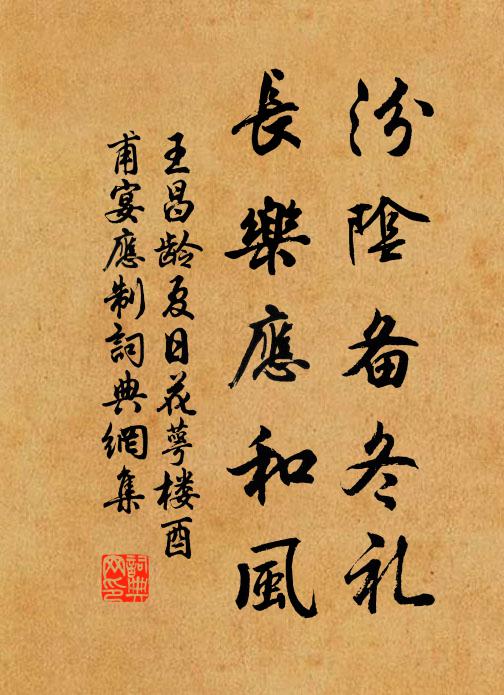 汾陰备冬礼
長樂應和風
王昌龄夏日花萼楼酉
甫宴應制詞典網集
詞典网印